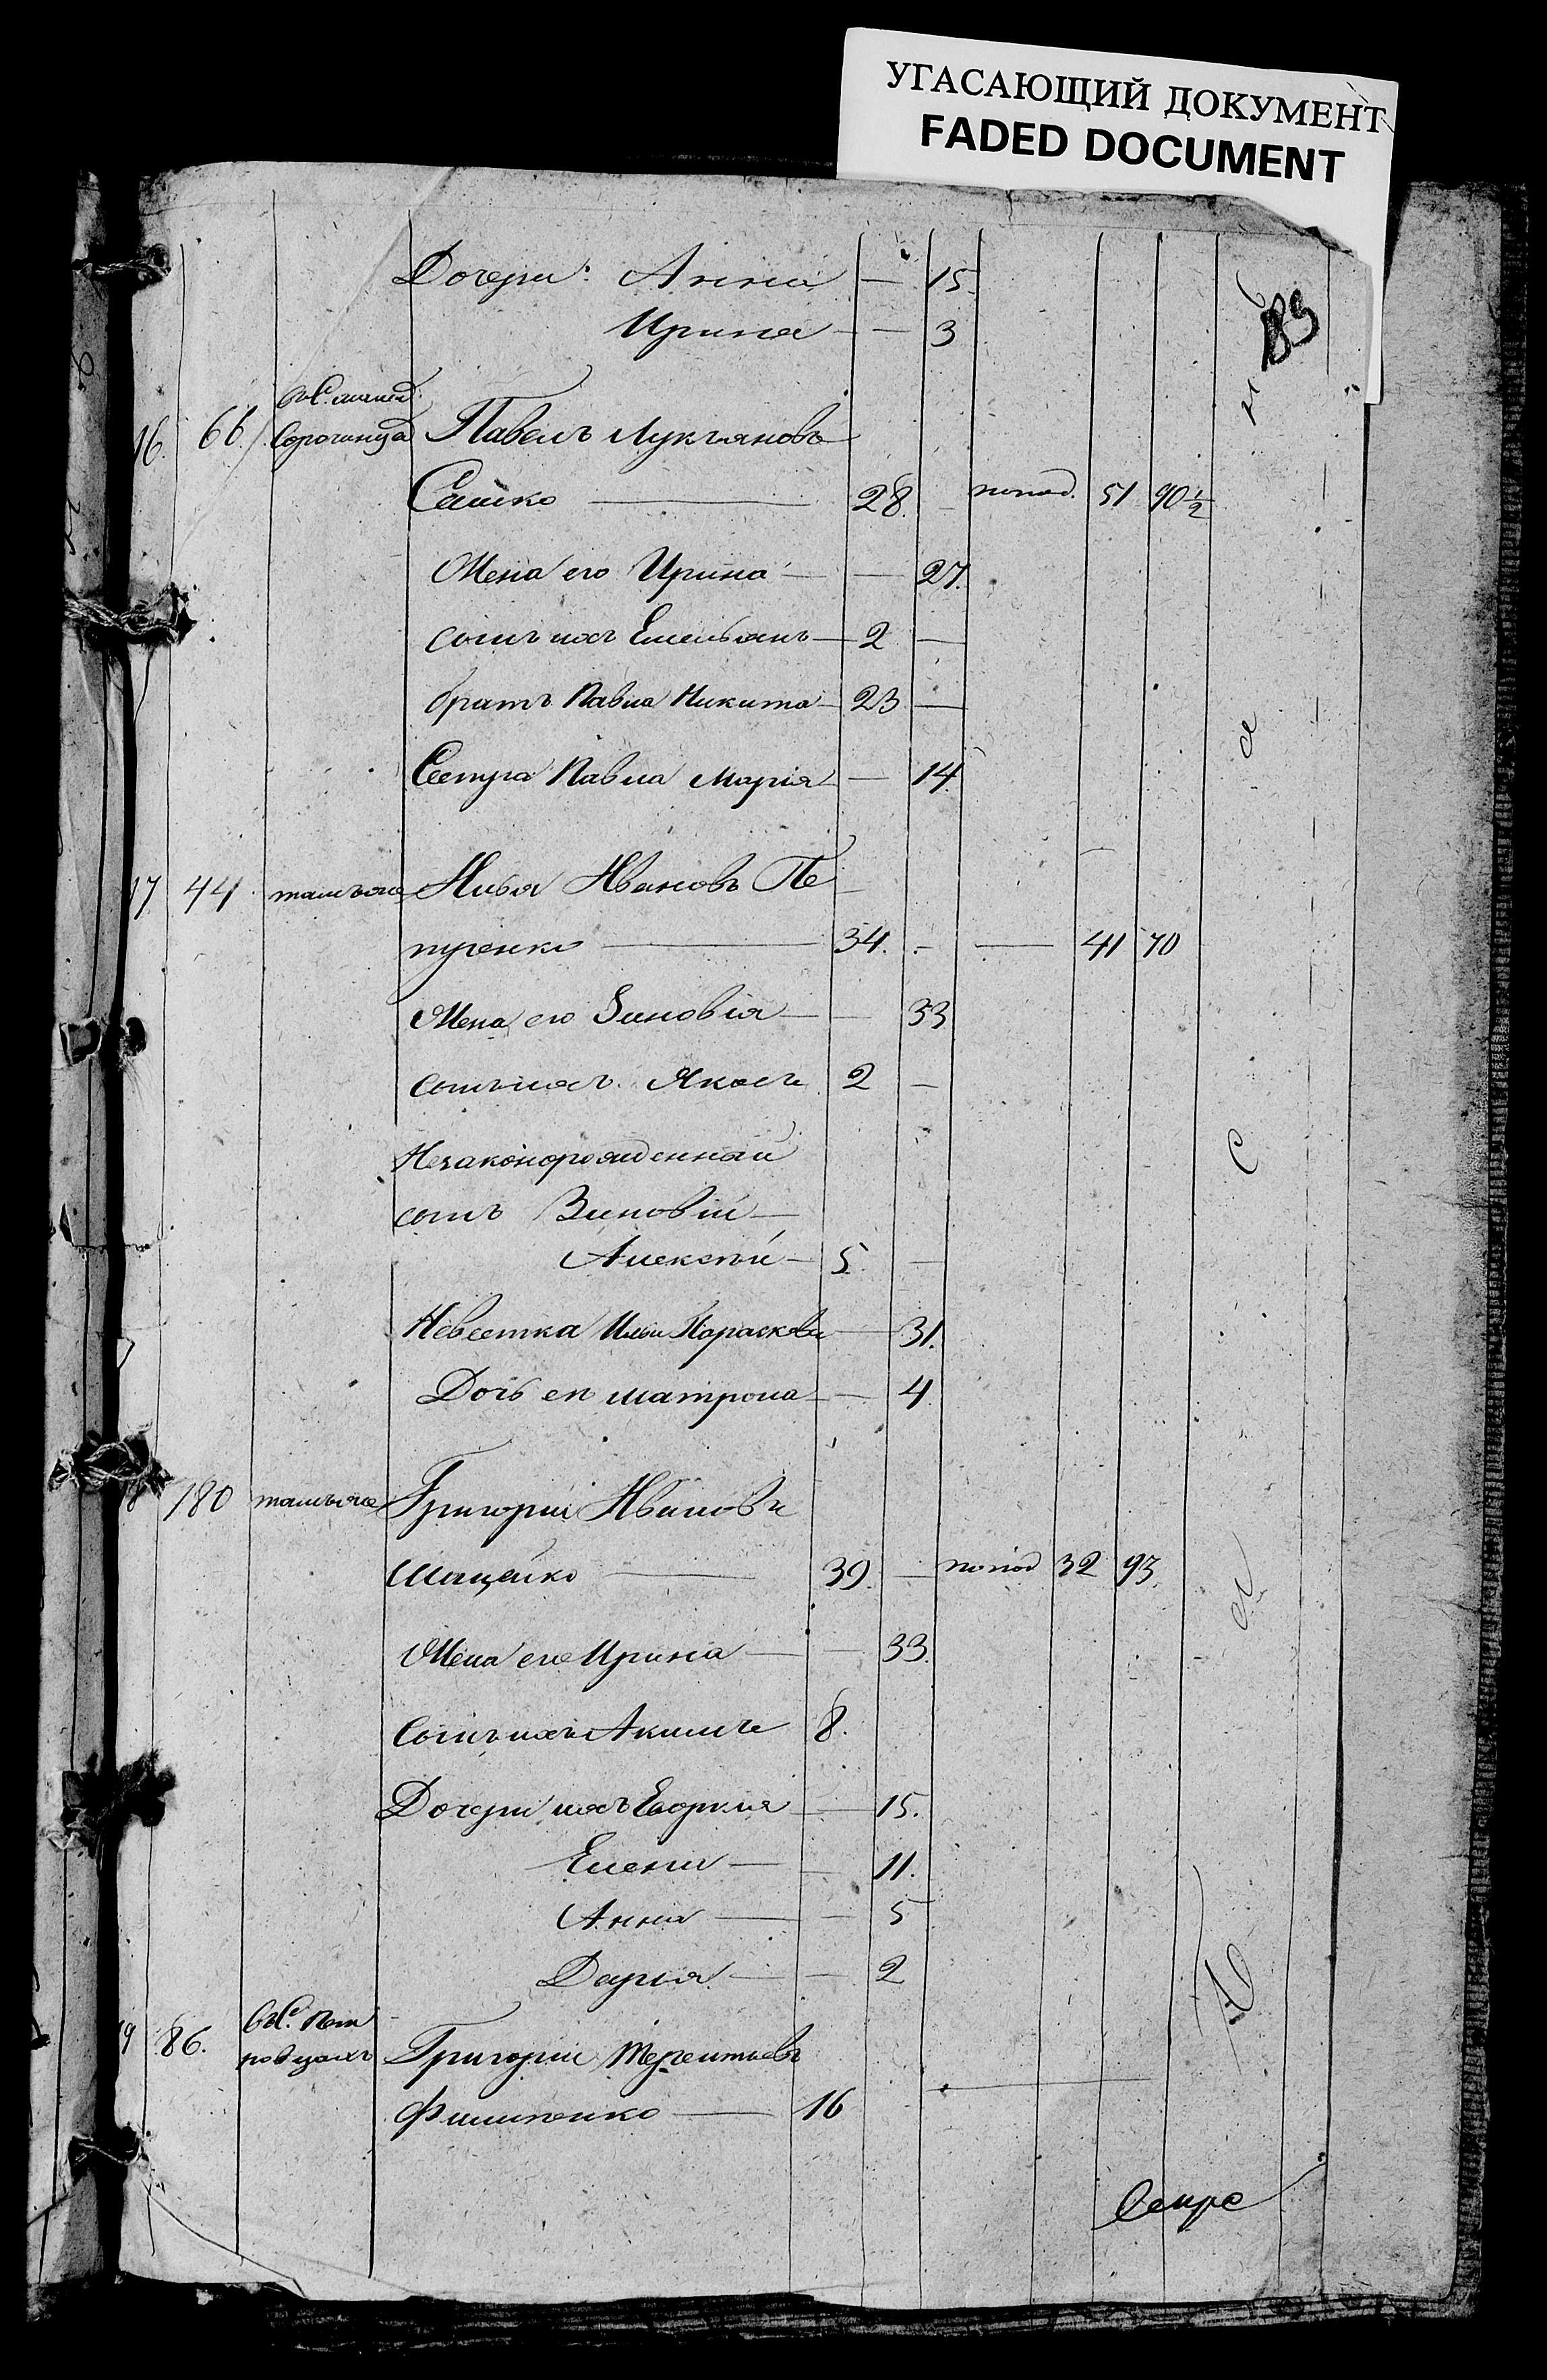 УГАСАЮЩИЙ ДОКУМЕНТ
FADED DOCUMENT
Дочери: Анна — 15.
Ирина — — 3
16. 66. Сорочинца Павелъ Лукьяновъ
Сашко — 28. 51 90 1/2
Жена его Ирина — — 27.
сынъ ихъ Емельянъ — 2 —
братъ Павла Никита — 23 —
Сестра Павла Марія — — 14.
17. 44. тамъже Илья Ивановъ Пе
— 34. — — 41 70
Жена его Зиновія — — 33
сынъ ихъ Яковъ 2 —
Незаконорожденный
сынъ Зиновіи —
Алексѣй — 5. —
Невестка Ильи Параскевія — 31.
Дочь ея Матрона — — 4
180 тамъже Григорій Ивановъ
39. — 32 93.
Жена его Ирина — — 33.
Сынъ ихъ Акимъ 8.
Дочери ихъ — — 15.
Елена — — 11.
Анна — — 5
Дарія — — 2
19 86. въ С. Пет
ровцахъ Григорій Терентьевъ
Филипенко — 16